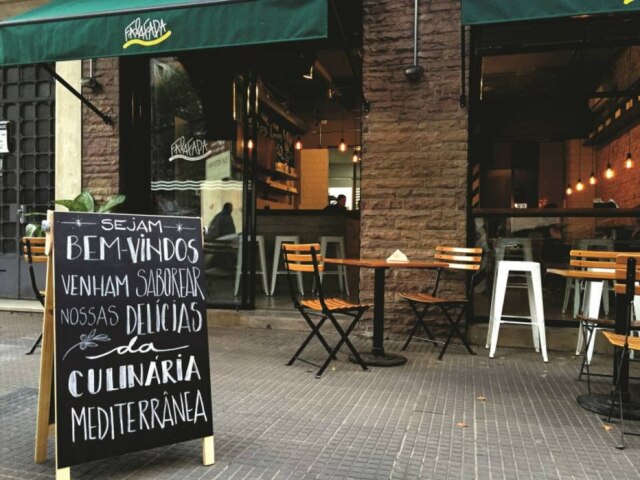 SEJAM
BEM-VINDOS
VENHAM SABOREAR
NOSSAS DELÍCIAS
da
CULINÁRIA
MEDITERRÂNEA